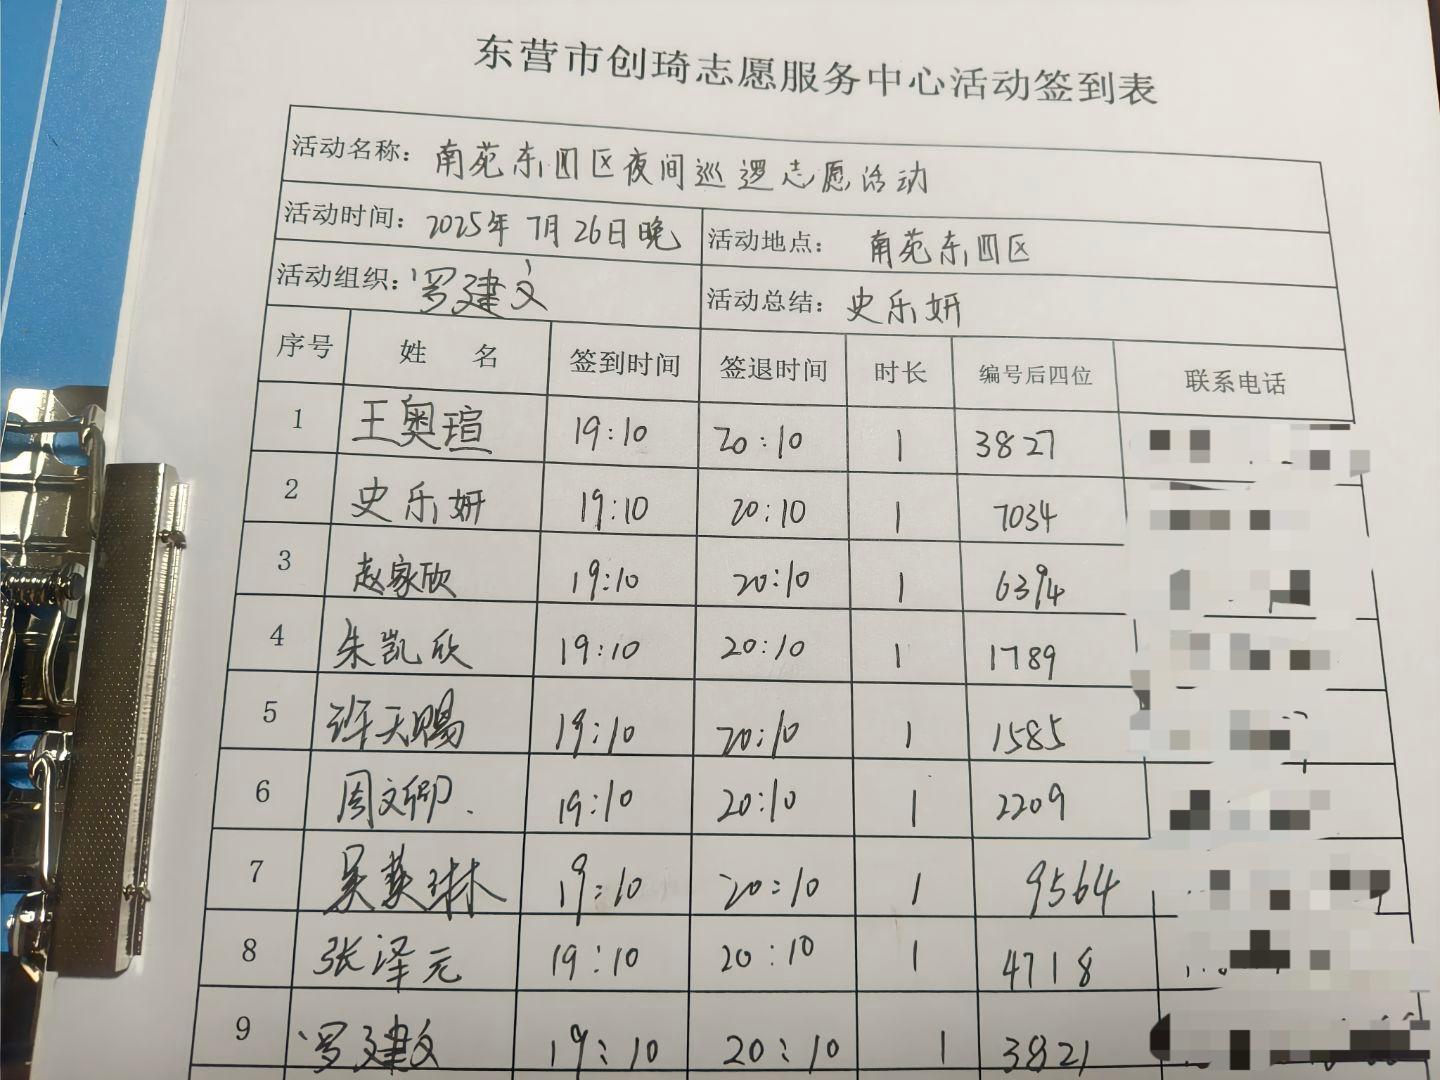 东营市创琦志愿服务中心活动签到表
活动名称：南苑东四区夜间巡逻志愿活动
活动时间：2025年7月26日晚 活动地点：南苑东四区
活动组织：罗建文 活动总结：史乐妍
序号 姓名 签到时间 签退时间 时长 编号后四位 联系电话
1 王奥瑄 19:10 20:10 1 3827
2 史乐妍 19:10 20:10 1 7034
3 赵家欣 19:10 20:10 1 6394
4 朱凯欣 19:10 20:10 1 1789
5 许天赐 19:10 20:10 1 1585
6 周文卿 19:10 20:10 1 2209
7 吴美琳 19:10 20:10 1 9564
8 张泽元 19:10 20:10 1 4718
9 罗建文 19:10 20:10 1 3821